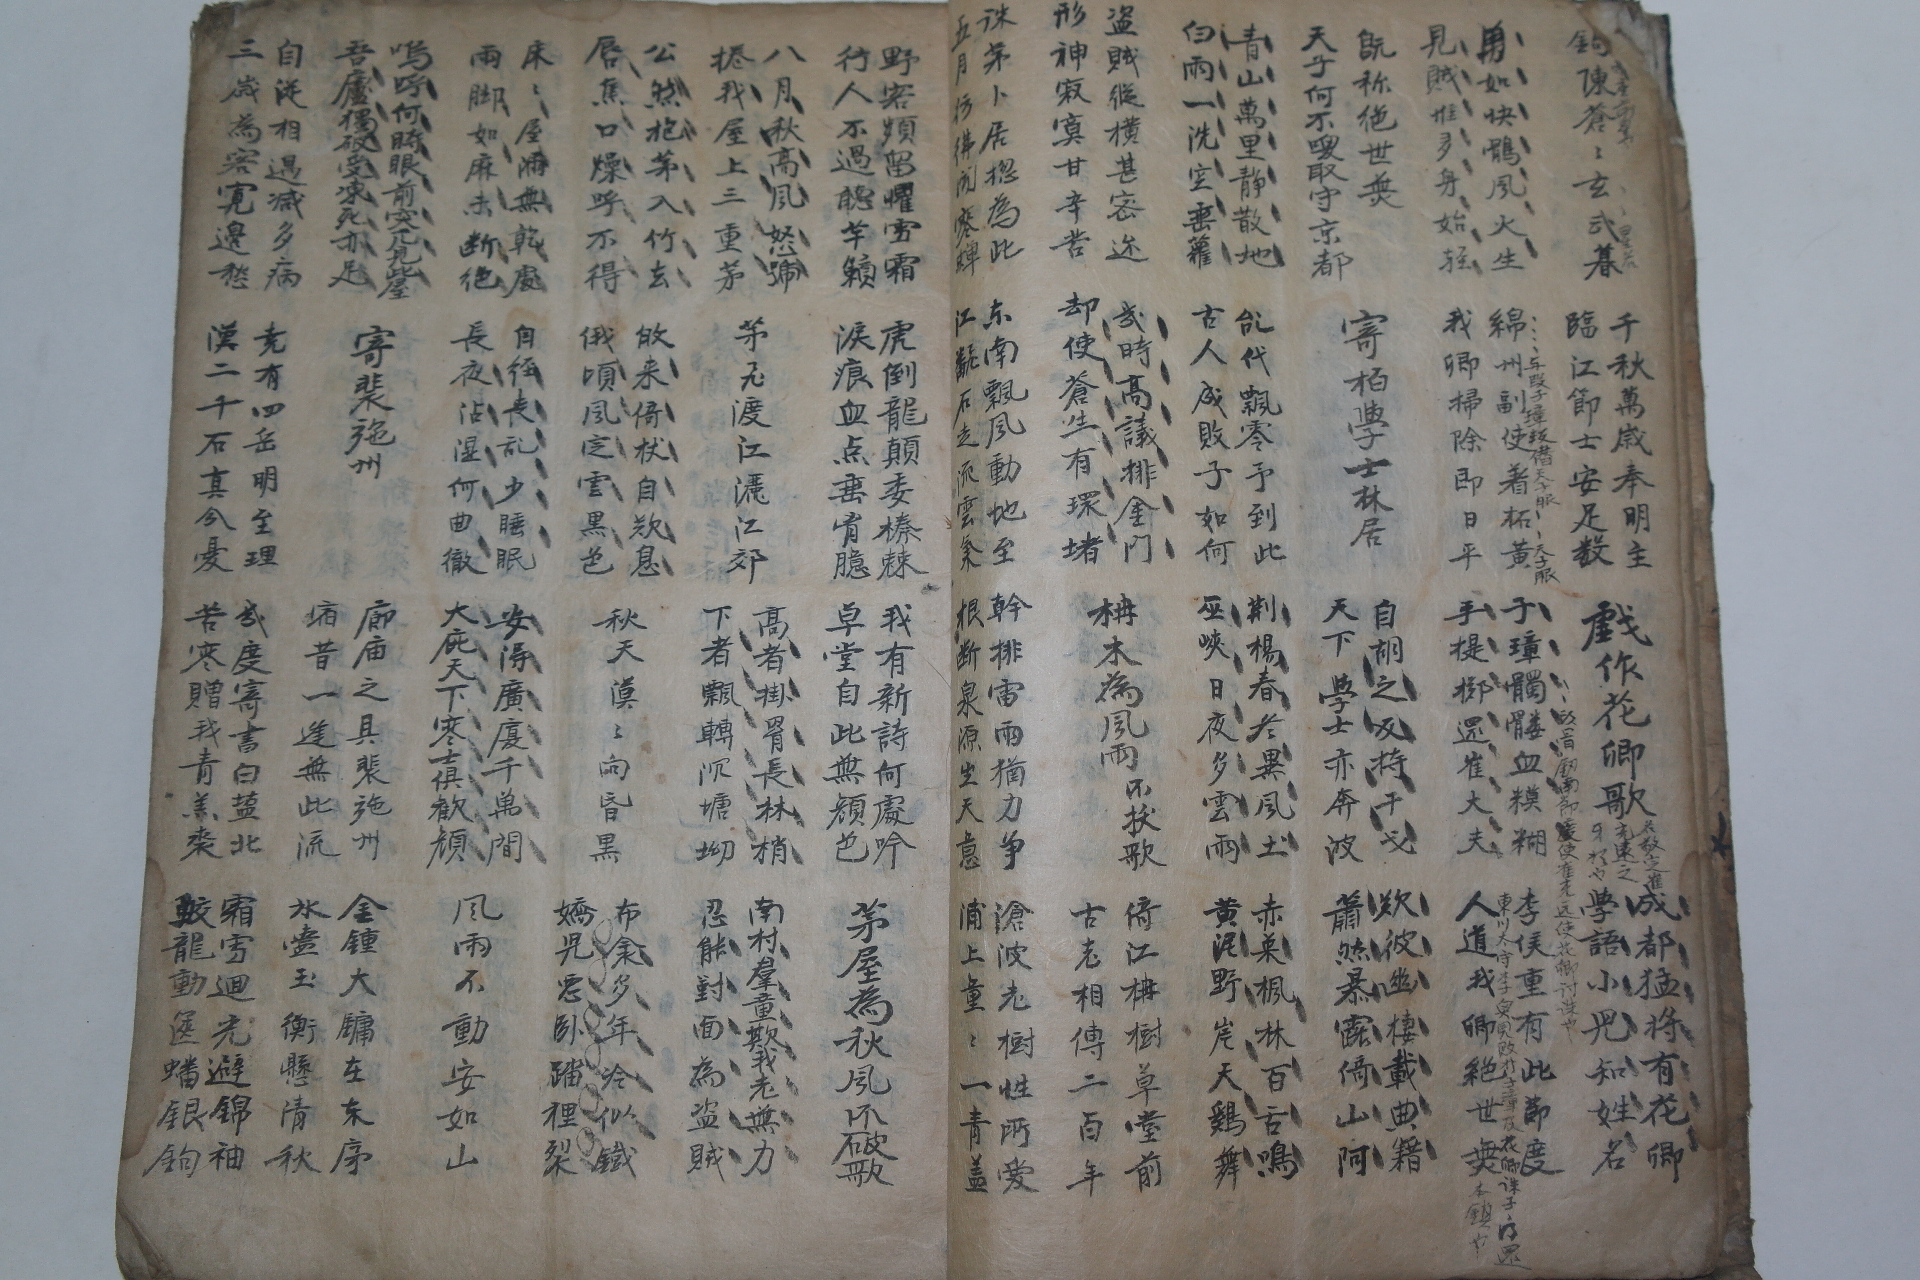 鉤陳蒼〻玄武暮
千秋萬歲奉明主
臨江節士安足数
戲作花卿歌
成都猛将有花卿
學語小児知姓名
勇如快鶻風火生
見賊惟多身始輕
綿州副使著柘黄
我卿掃除即日平
子璋髑髏血糢糊
手提擲還崔大夫
李侯重有此節度
人道我卿絕世無
既称绝世無
天子何不喚取守京都
寄栢學士林居
自胡之反持干戈
天下學士亦奔波
歎彼幽棲載典籍
蕭然暴露倚山阿
青山萬里静散地
白雨一洗空垂蘿
乱代飄零予到此
古人成敗子如何
荆楊春冬異風土
巫峽日夜多雲雨
赤葉楓林百舌鳴
黄泥野岸天鷄舞
盗賊縱橫甚密迩
形神寂寞甘辛苦
幾時髙議排金門
却使蒼生有環堵
柟木為風雨所拔歌
倚江柟樹草堂前
古老相傳二百年
誅茅卜居揔為此
五月彷彿聞寒蟬
东南飄風動地至
江飜石走流雲氣
幹排雷雨猶力爭
根断泉源豈天意
滄波老樹性所愛
浦上童〻一青盖
野客頻留懼雪霜
行人不過聽竽籟
虎倒龍顛委榛棘
淚痕血点垂胷臆
我有新詩何處吟
草堂自此無顔色
茅屋為秋風所破歌
八月秋高風怒號
捲我屋上三重茅
茅飛渡江灑江郊
高者掛罥長林梢
下者飄轉沉塘坳
南村羣童欺我老無力
忍能對面為盗賊
公然抱茅入竹去
唇焦口燥呼不得
敀来倚杖自歎息
俄頃風定雲黑色
秋天漠〻向昏黑
布衾多年冷似鐵
嬌児恶卧踏裡裂
床〻屋漏無乾處
雨脚如麻未断绝
自経喪乱少睡眠
長夜沾湿何由徹
安得廣廈千萬間
大庇天下寒士俱歡顔
風雨不動安如山
嗚呼何時眼前突兀見此屋
吾廬獨破受凍死亦足
寄裴施州
廊庙之具裴施州
宿昔一逢無此流
金鍾大鏞在东序
氷壺玉衡懸清秋
自從相遇减多病
三歲為客寛邊愁
尭有四岳明至理
漢二千石真分憂
幾度寄書白盐北
苦寒贈我青羔裘
霜雪迴光避錦袖
蛟龍動篋蟠銀鉤